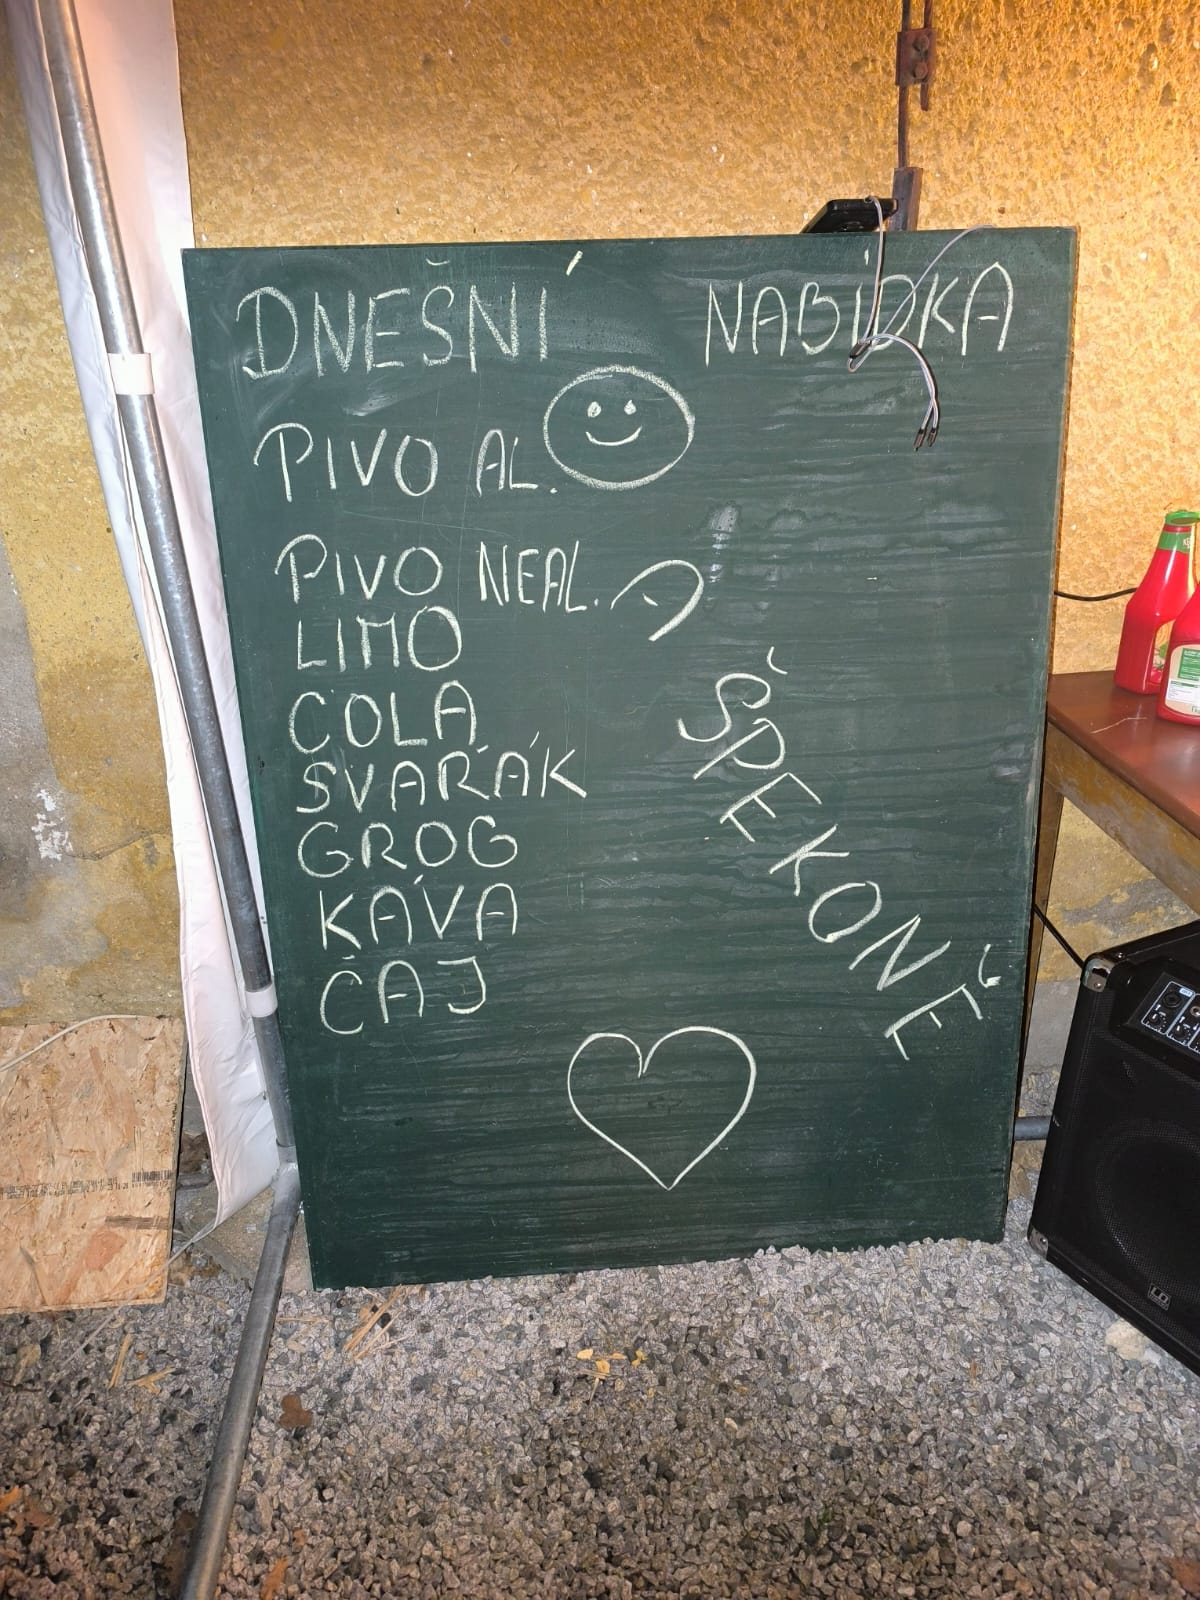 DNEŠNÍ NABÍDKA
PIVO AL.
PIVO NEAL.
LIMO
COLA
SVAŘÁK
GROG
KÁVA
ČAJ
ŠPEKONĚ